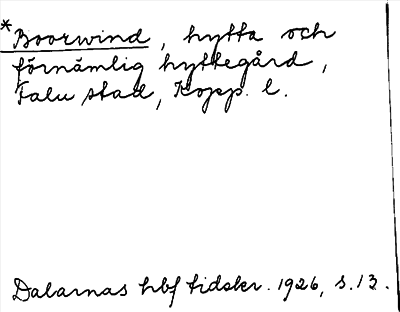 *Boorwind, hytta och
förnämlig hyttegård,
Falu stad, Kopp. l.
Dalarnas hbf tidskr. 1926, s. 13.